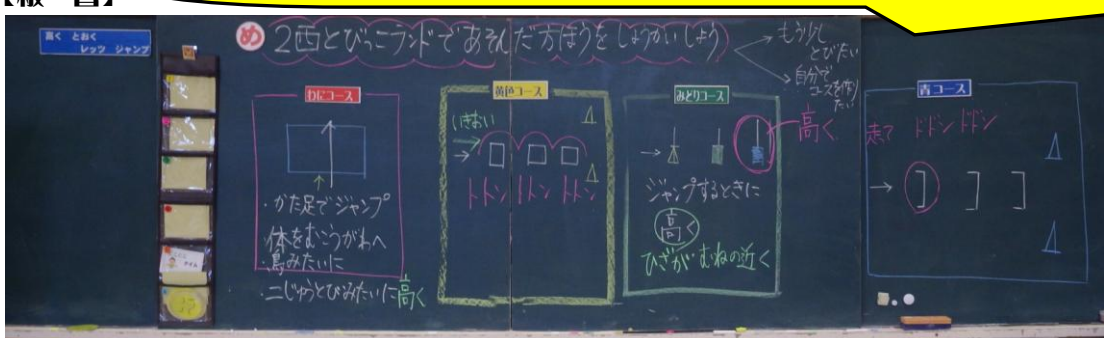 【板 書】
高く とおく
レッツ ジャンプ
め 2西とびっこランドであそんだ方ほうをしょうかいしよう
→もう少し
とびたい
→自分で
コースを作り
たい
わにコース
・かた足でジャンプ
・体をむこうがわへ
・鳥みたいに
・二じゅうとびみたいに高く
黄色コース
いきおい
トトン トトン トトン
みどりコース
高く
ジャンプするときに
高く
ひざが むねの近く
青コース
走って ドドン ドドン